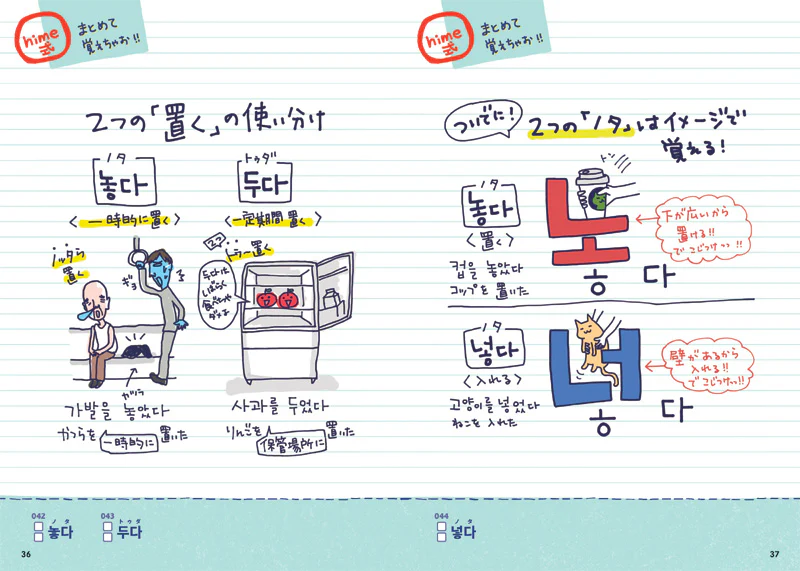 hime式
まとめて
覚えちゃお!!
2つの「置く」の使い分け
ノタ
놓다
<一時的に置く>
ノッタら
置く
ギョ
가발을 놓았다
かつら
かつらを 一時的に 置いた
トゥダ
두다
<一定期間 置く>
トゥー置く
두다は
しばらく
食べちゃ
ダメよ
사과를 두었다
りんごを 保管場所に 置いた
042
ノタ
놓다
043
トゥダ
두다
36
hime式
まとめて
覚えちゃお!!
ついでに!
2つの「ノタ」はイメージで
覚える!
ノタ
놓다
<置く>
컵을 놓았다
コップを置いた
トン
노
ㅎ 다
下が広いから
置ける!!
でこじつけっ!!
ノタ
넣다
<入れる>
고양이를 넣었다
ねこを入れた
너
ㅎ 다
壁があるから
入れる!!
でこじつけっ!!
044
ノタ
넣다
37